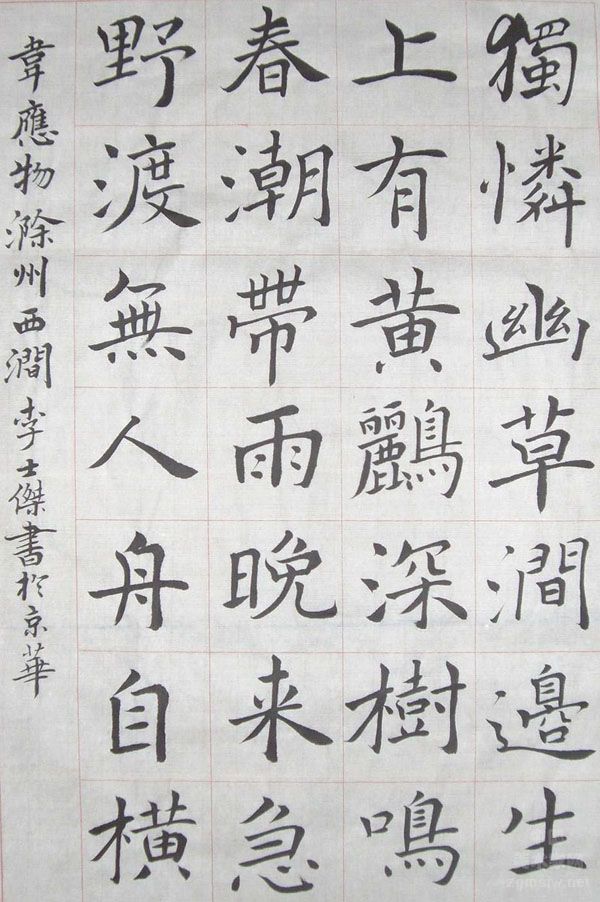 獨憐幽草澗邊生
上有黃鸝深樹鳴
春潮帶雨晚来急
野渡無人舟自橫
韋應物滁州西澗李士傑書於京華
zgmsfw.net